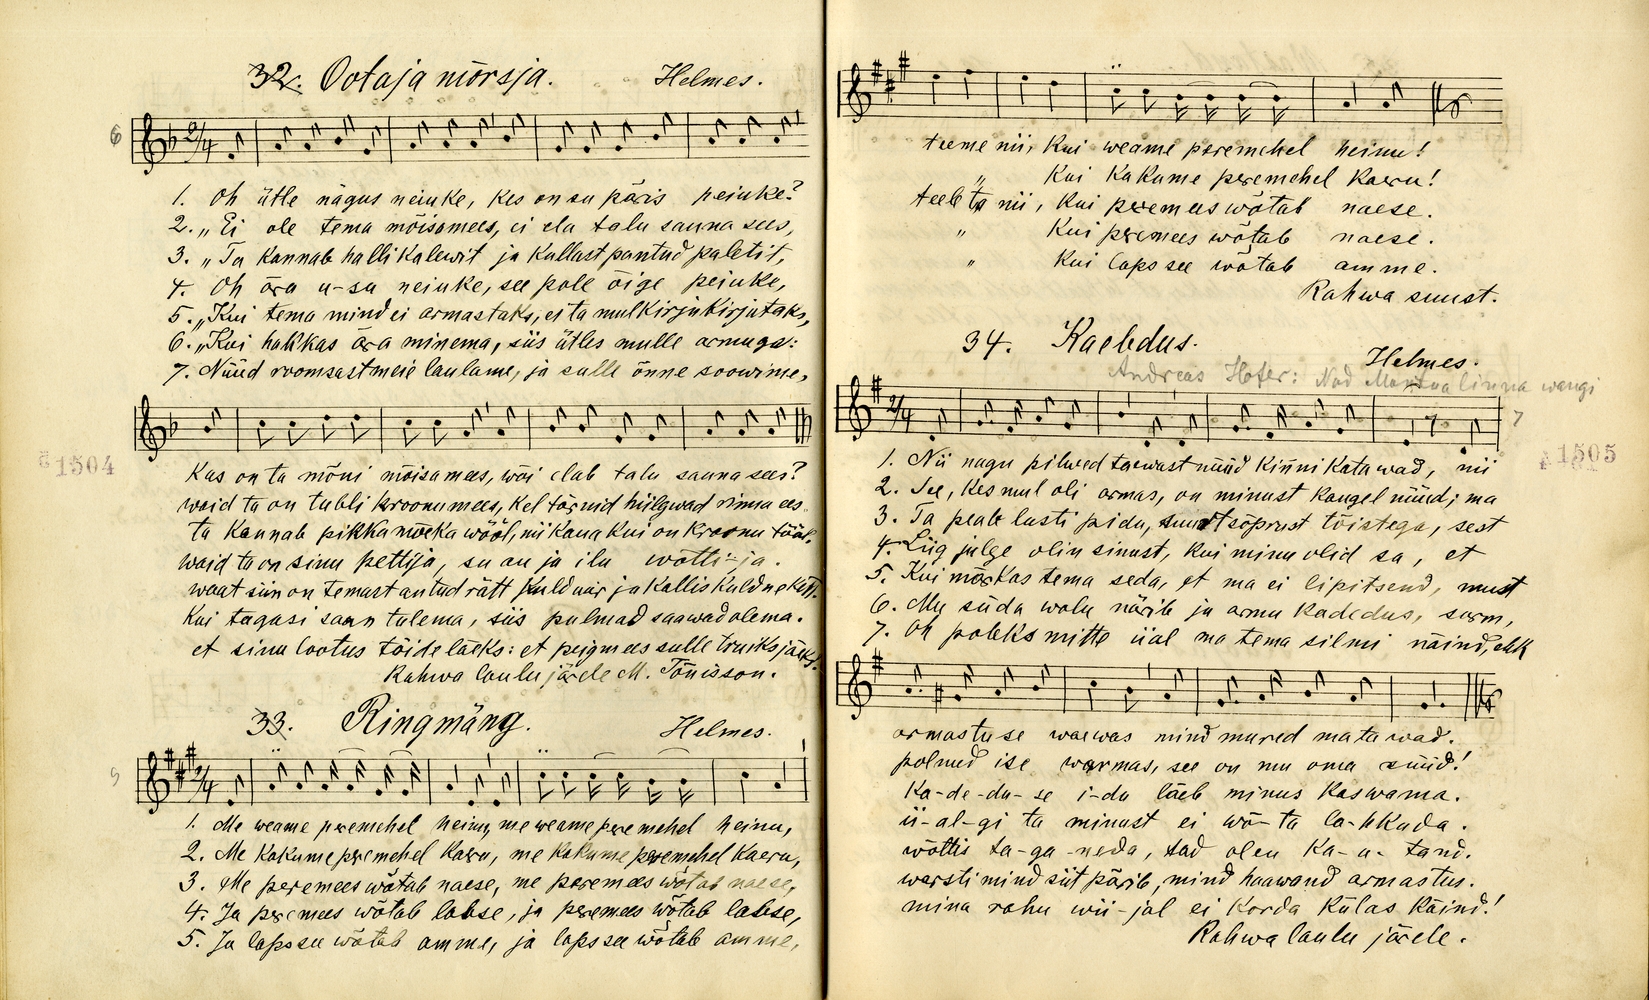 32. Ootaja mõrsja. Helmes.
6
2/4
1. Oh ütle nägus neiuke, kes on su päris peiuke?
2. „Ei ole tema mõisamees, ei ela talu sauna sees,
3. „Ta kannab halli kalewit ja kullast pantud paletit,
4. Oh ära u-su neiuke, see pole õige peiuke,
5. „Kui tema mind ei armastaks, ei ta mul kirju kirjutaks,
6. „Kui hakkas ära minema, siis ütles mulle armuga:
7. Nüüd roomsast meie laulame, ja sulle õnne soowime,
1504
Kas on ta mõni mõisamees, wõi elab talu sauna sees?
waid ta on tubli kroonumees, kel tärnid hiilgwad rinna ees.
ta kannab pikka mõeka wööl, nii kaua kui on kroonu tööl.
waid ta on sinu pettija, su au ja ilu wõtti-ja.
waat siin on temast antud rätt kuld uur ja kallis kuldne kätt.
Kui tagasi saan tulema, siis pulmad saawad olema.
et sinu lootus täide läeks: et peigmees sulle truiks jääks.
Rahwa laulu järele M. Tõnisson.
33. Ringmäng. Helmes.
9
2/4
1. Me weame peremehel heinu, me weame peremehel heinu,
2. Me kakume peremehel kaeru, me kakume peremehel kaeru,
3. Me peremees wõtab naese, me peremees wõtab naese,
4. Ja peremees wõtab labse, ja peremees wõtab labse,
5. Ja laps see wõtab amme, ja laps see wõtab amme,
teeme nii, kui weame peremehel heinu!
„ Kui kakume peremehel kaeru!
teeb ta nii, kui peremees wõtab naese.
„ Kui peremees wõtab naese.
„ Kui laps see wõtab amme.
Rahwa suust.
34. Kaebdus. Helmes.
Andreas Hofer: Nad Mantua linna wangi
2/4
7
1. Nii nagu pilwed taewast nüüd kinni katawad, nii
2. See, kes mul oli armas, on minust kaugel nüüd; ma
3. Ta peab lusti pidu, suurt sõprust tõistega, sest
4. Liig julge olin sinust, kui minu olid sa, et
5. Kui märkas tema seda, et ma ei lipitsend, must
6. Mu süda walu närib ja armu kadedus, surm,
7. Oh poleks mitte iial ma tema silmi näind, ehk
1505
armastuse waewas mind mured matawad.
polnud ise warmas, see on mu oma süüd!
Ka-de-du-se i-du läeb minus kaswama.
ii-al-gi ta minust ei wõ-ta la-hkuda.
wõttis ta-ga-neda, sad olen ka-u-tand.
warsti mind siit pärib, mind haawand armastus.
mina rahu wii-jal ei korda külas käind!
Rahwa laulu järele.